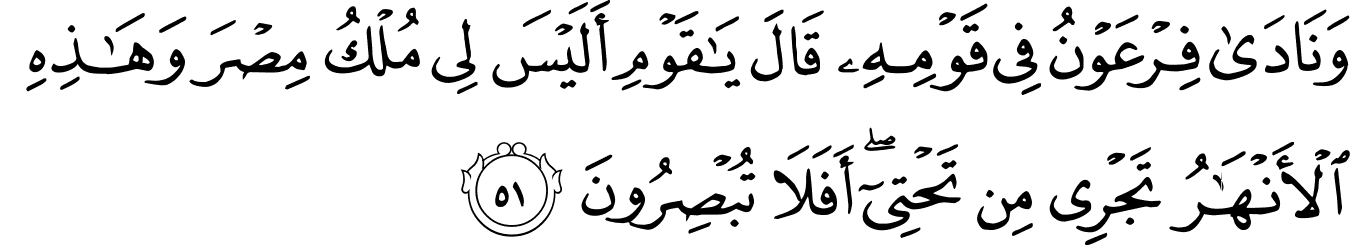 وَنَادَىٰ فِرْعَوْنُ فِى قَوْمِهِۦ قَالَ يَـٰقَوْمِ أَلَيْسَ لِى مُلْكُ مِصْرَ وَهَـٰذِهِ
ٱلْأَنْهَـٰرُ تَجْرِى مِن تَحْتِىٓ ۖ أَفَلَا تُبْصِرُونَ ٥١